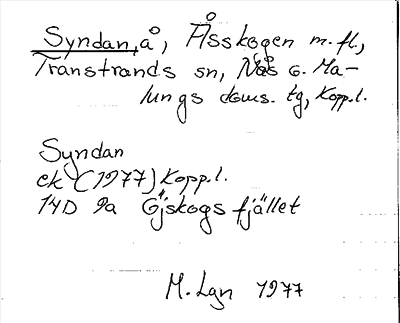 Syndan, å, Åsskogen m.fl.,
Transtrands sn, Nås o. Ma-
lungs doms. tg, Kopp.l.
Syndan
ek (1977) Kopp.l.
14D 9a Göjskogsfjället
M. Lgn 1977